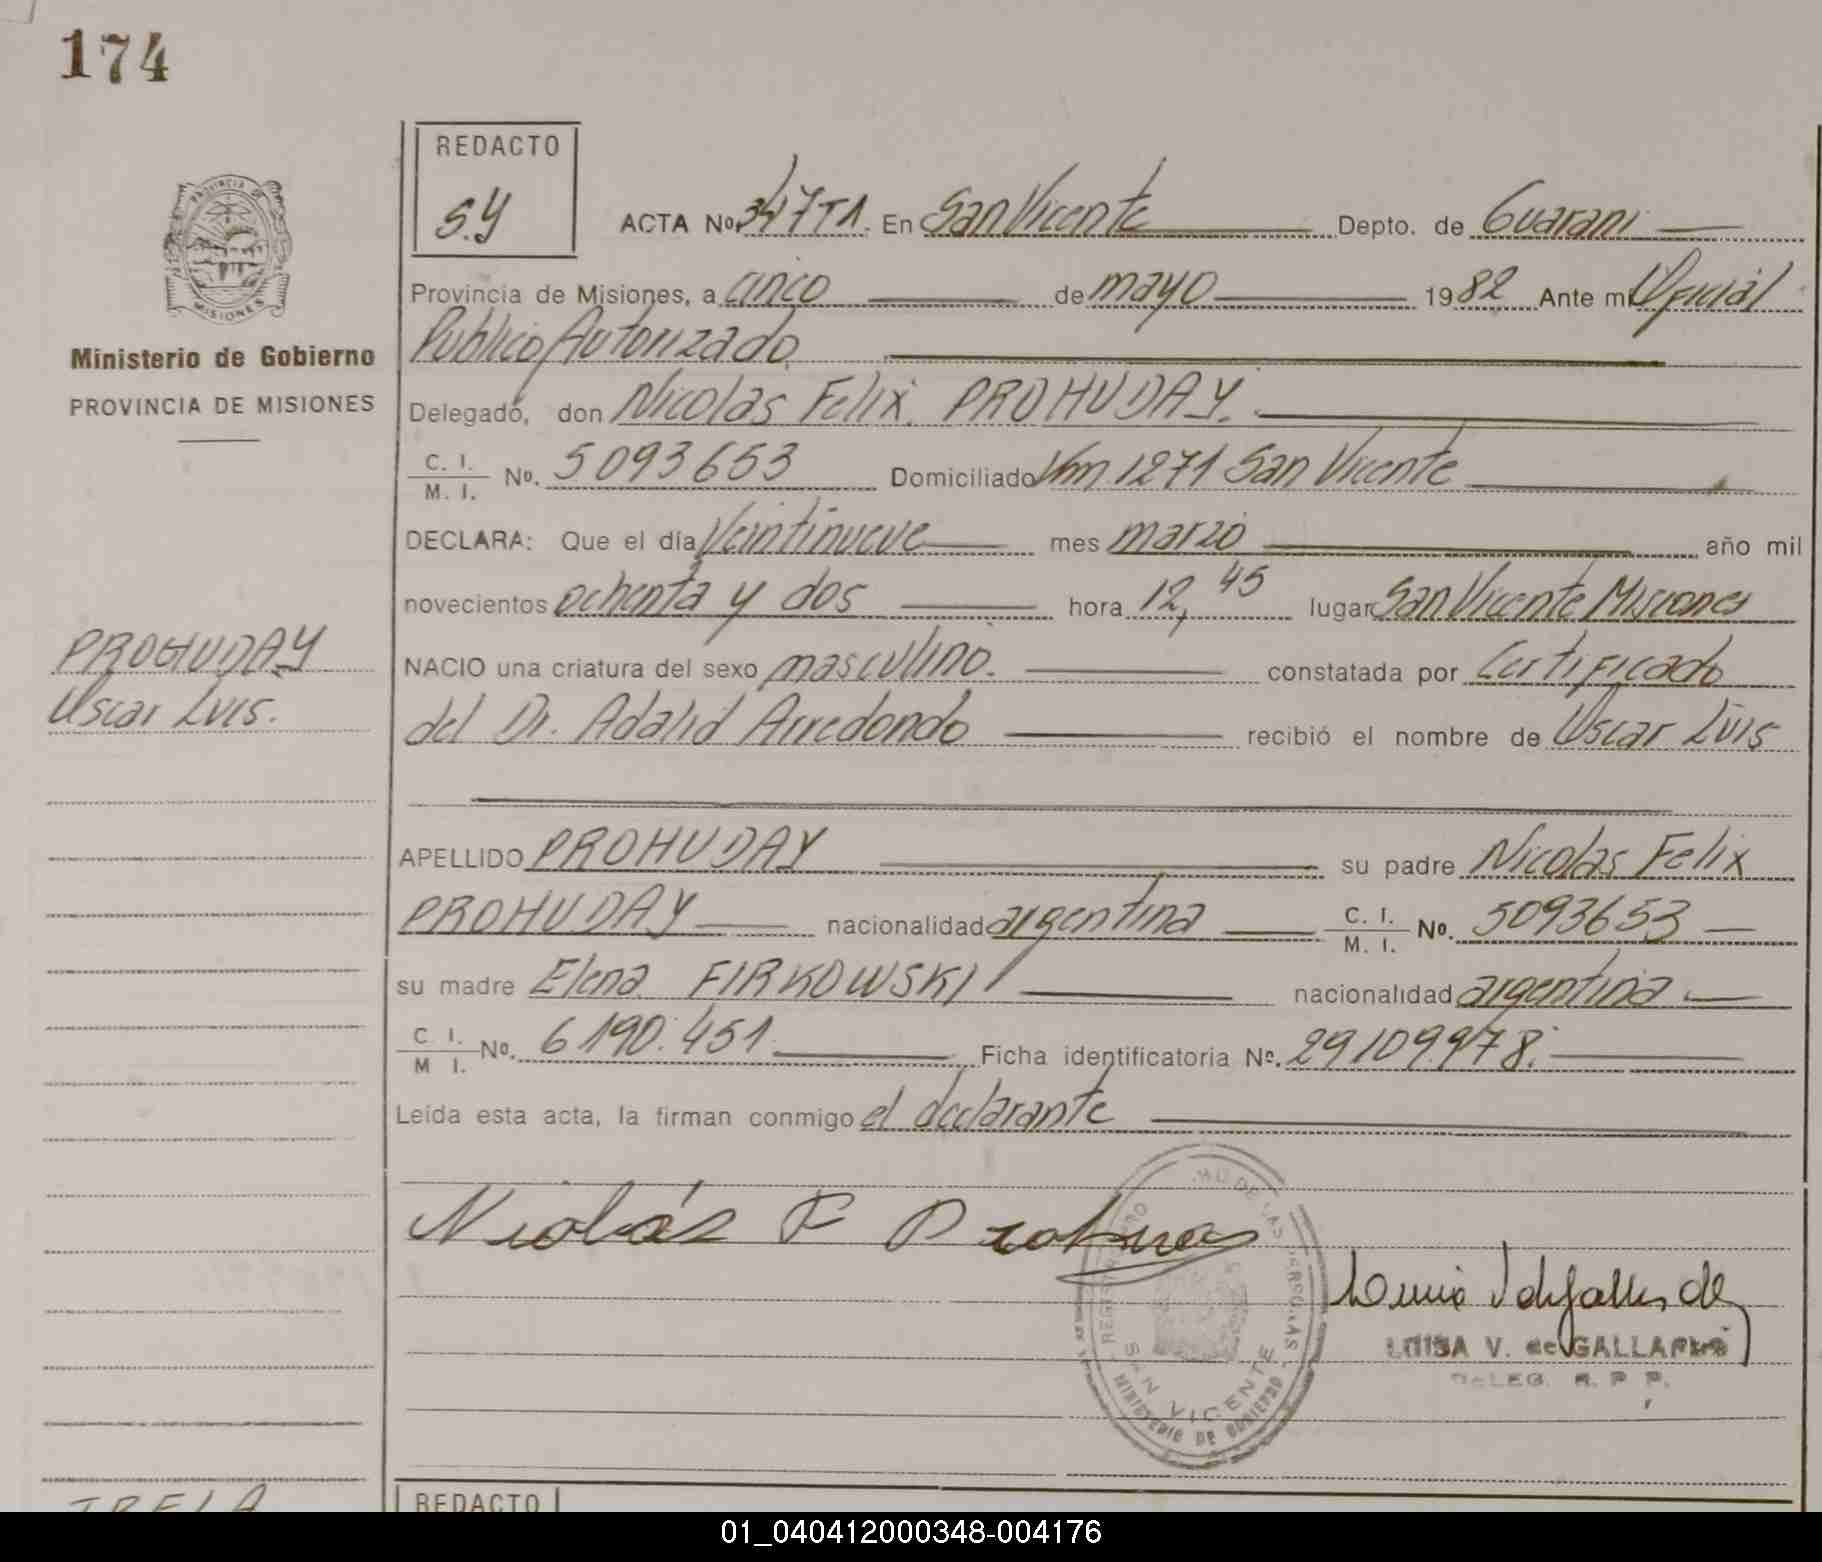 174
REDACTO
S.Y
ACTA Nº 347 T1. En San Vicente Depto. de Guarani
Provincia de Misiones, a cinco de mayo 1982 Ante mi Oficial
Publico Autorizado,
Delegado, don Nicolas Felix PROHUDAY.
C. I. / M. I. Nº. 5093653 Domiciliado Km 1271 San Vicente
DECLARA: Que el día Veintinueve mes marzo año mil
novecientos ochenta y dos hora 12,45 lugar San Vicente Misiones
NACIO una criatura del sexo masculino. constatada por Certificado
del Dr. Adalid Arredondo recibió el nombre de Oscar Luis
APELLIDO PROHUDAY su padre Nicolas Felix
PROHUDAY nacionalidad argentina C. I. / M. I. Nº. 5093653
su madre Elena FIRKOWSKI nacionalidad argentina
C. I. / M. I. Nº. 6190.451 Ficha identificatoria Nº. 29109978.
Leída esta acta, la firman conmigo el declarante
Nicolás F
LUISA V. de GALLARDO
DELEG. R. P. P.
REGISTRO DE LAS PERSONAS
SAN VICENTE
MINISTERIO DE GOBIERNO
PROVINCIA DE
MISIONES
Ministerio de Gobierno
PROVINCIA DE MISIONES
PROHUDAY
Oscar Luis.
REDACTO
01_040412000348-004176